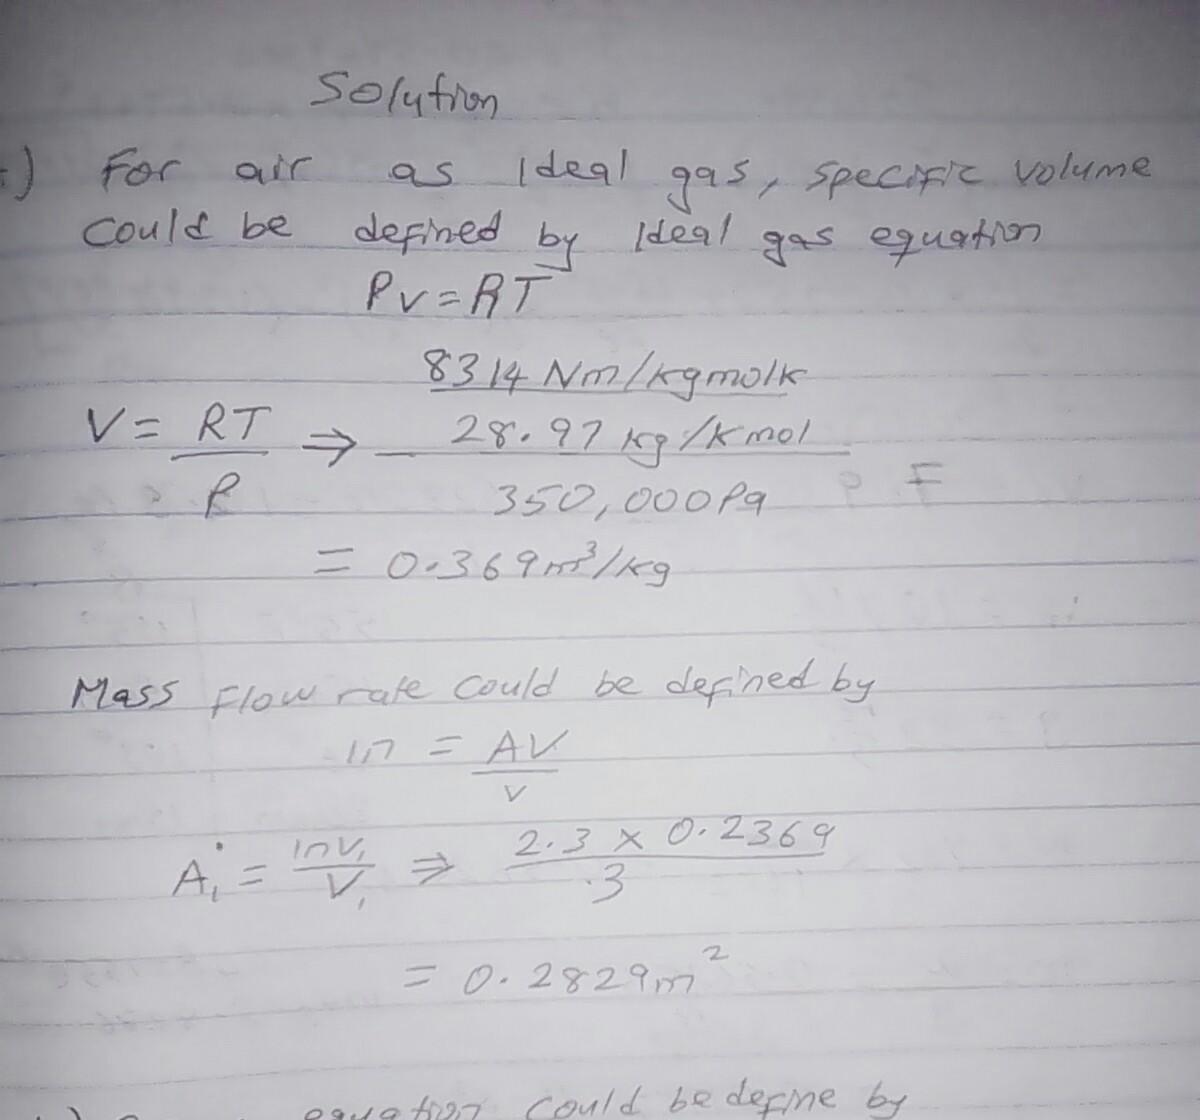 Solution
) For air as Ideal gas, specific volume
Could be defined by Ideal gas equation
Pv=RT
8314 Nm/kgmolk
V= RT ⇒ 28.97 kg/kmol
P 350,000Pa
= 0.369m³/kg
Mass Flow rate Could be defined by
ṁ = AV
v
A₁ = ṁv₁ ⇒ 2.3 x 0.2369
V₁ .3
= 0.2829m²
equation could be define by